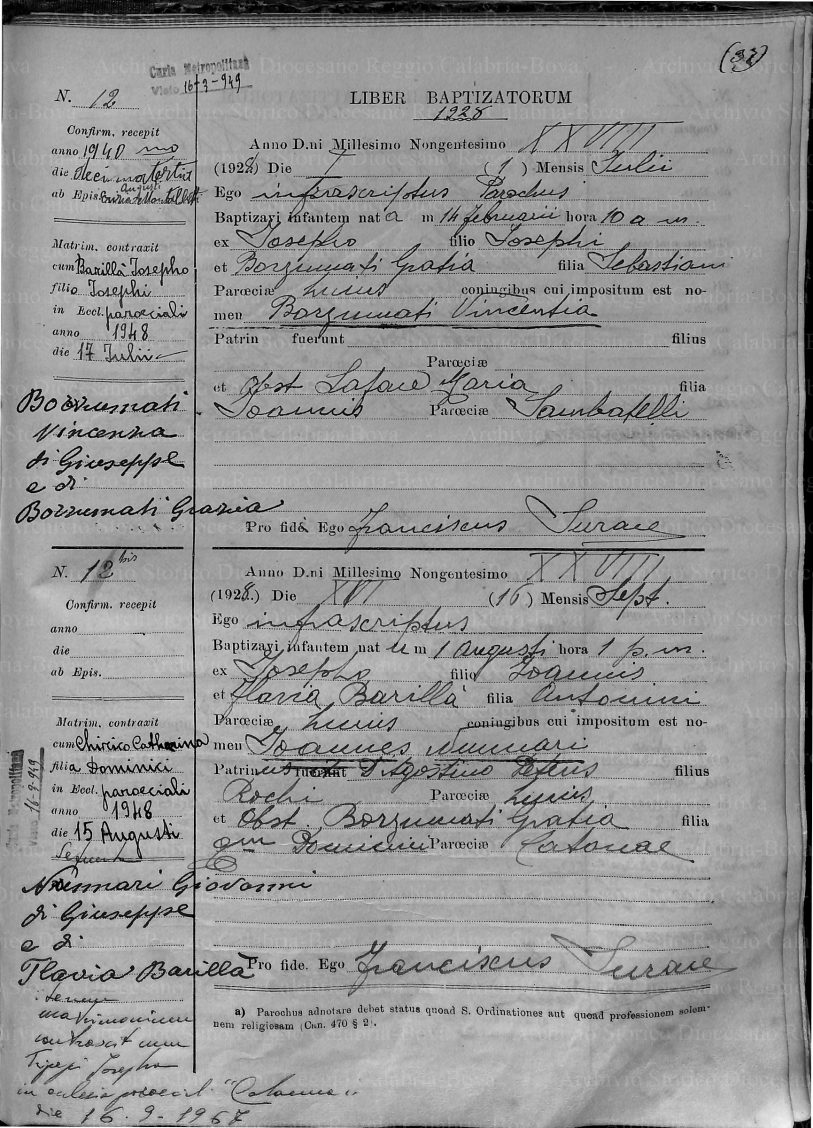 (37)
Curia Metropolitana
Visto 16-9-949
N. 12
LIBER BAPTIZATORUM
1928
Confirm. recepit
anno 1940
die decima tertia
Augusti
ab Epis.
Matrim. contraxit
cum Barillà Josepho
filio Josephi
in Eccl. paroeciali
anno 1948
die 17 Iulii
Borzumati
Vincenza
di Giuseppe
e di
Borzumati Grazia
Anno D.ni Millesimo Nongentesimo XXVIII
(1928) Die I (1) Mensis Iulii
Ego infrascriptus Parochus
Baptizavi infantem nata m 14 februarii hora 10 a m.
ex Iosepho filio Iosephi
et Borzumati Gratia filia Sebastiani
Parœciæ hujus coniugibus cui impositum est no-
men Borzumati Vincentia
Patrin fuerunt filius
Parœciæ
et Obst Laface Maria filia
Ioannis Parœciæ Sambatelli
Pro fide Ego Franciscus Surace
N. 12 bis
Confirm. recepit
anno
die
ab Epis.
Matrim. contraxit
cum Chirico Catherina
filia Dominici
in Eccl. paroeciali
anno 1948
die 15 Augusti
Curia Metropolitana
Visto 16-9-949
Nunnari Giovanni
di Giuseppe
e di
Flavia Barillà
matrimonium
contraxit cum
Josepha
in ecclesia paroecial. "Catonae"
die 16-9-1967
Anno D.ni Millesimo Nongentesimo XXVIII
(1928.) Die XVI (16) Mensis Sept.
Ego infrascriptus
Baptizavi infantem natu m 1 Augusti hora 1 p. m.
ex Iosepho filio Ioannis
et Flavia Barillà filia Antonini
Parœciæ hujus coniugibus cui impositum est no-
men Ioannes Nunnari
Patrinus fuerunt D'Agostino Petrus filius
Rochi Parœciæ hujus
et Obst. Borzumati Gratia filia
qm Dominici Parœciæ Catonae
Pro fide. Ego Franciscus Surace
a) Parochus adnotare debet status quoad S. Ordinationes aut quoad professionem solem-
nem religiosam (Can. 470 § 2).